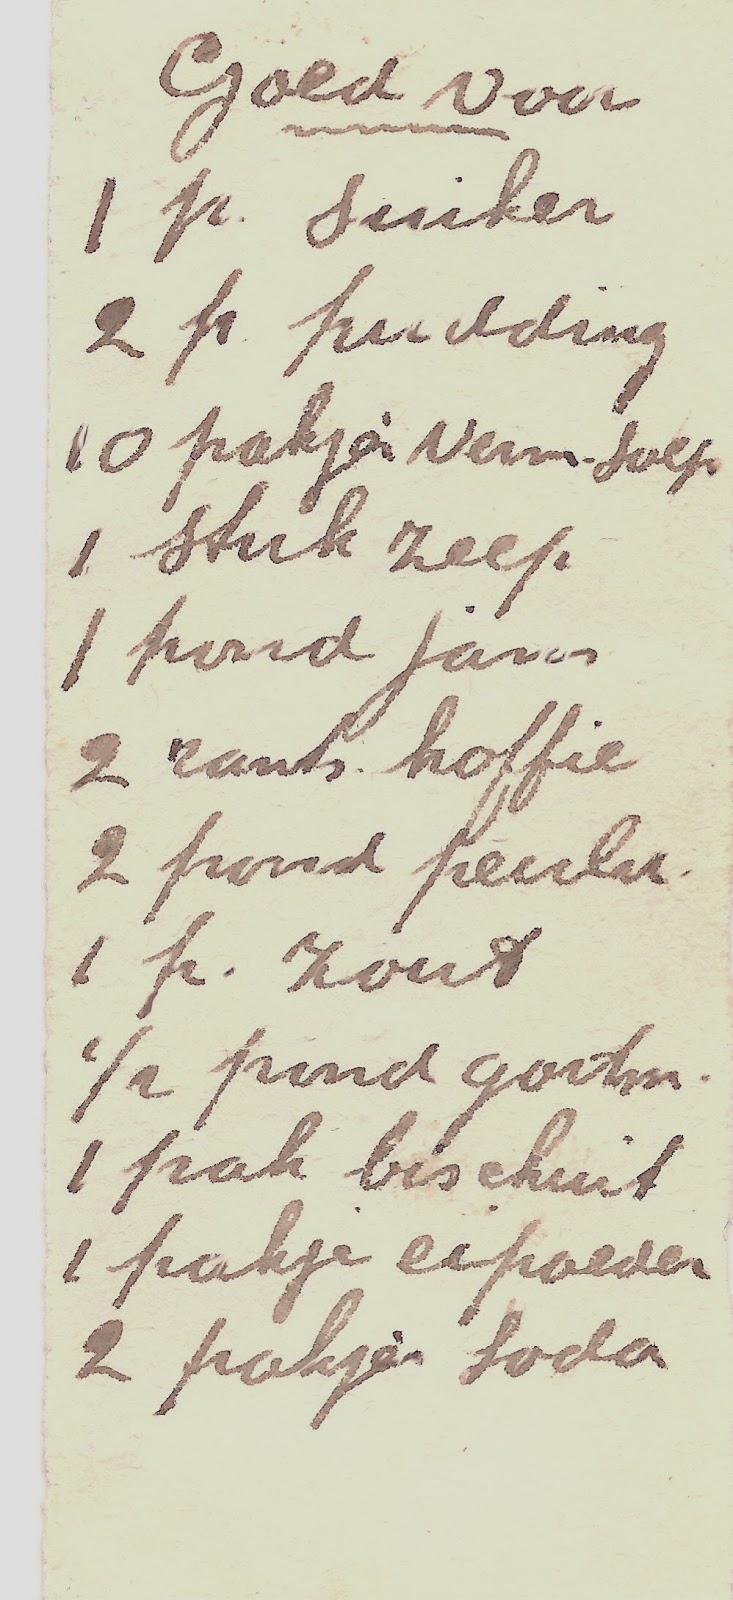 Goed voor
1 p. suiker
2 p. pudding
10 pakjes Verm-soep
1 stuk zeep
1 pond jam
2 rants. koffie
2 pond peulvr.
1 p. zout
1/2 pond gortm.
1 pak bischuit
1 pakje eipoeder
2 pakjes soda